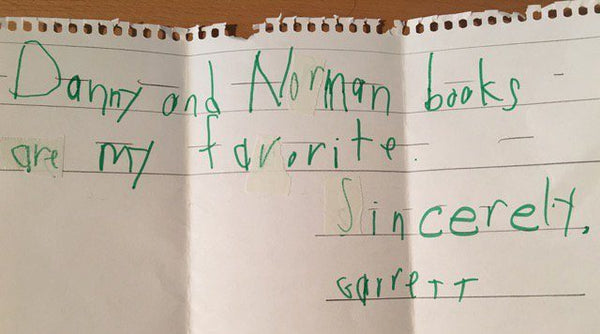 Danny and Norman books
are my favorite.
Sincerely,
Garrett